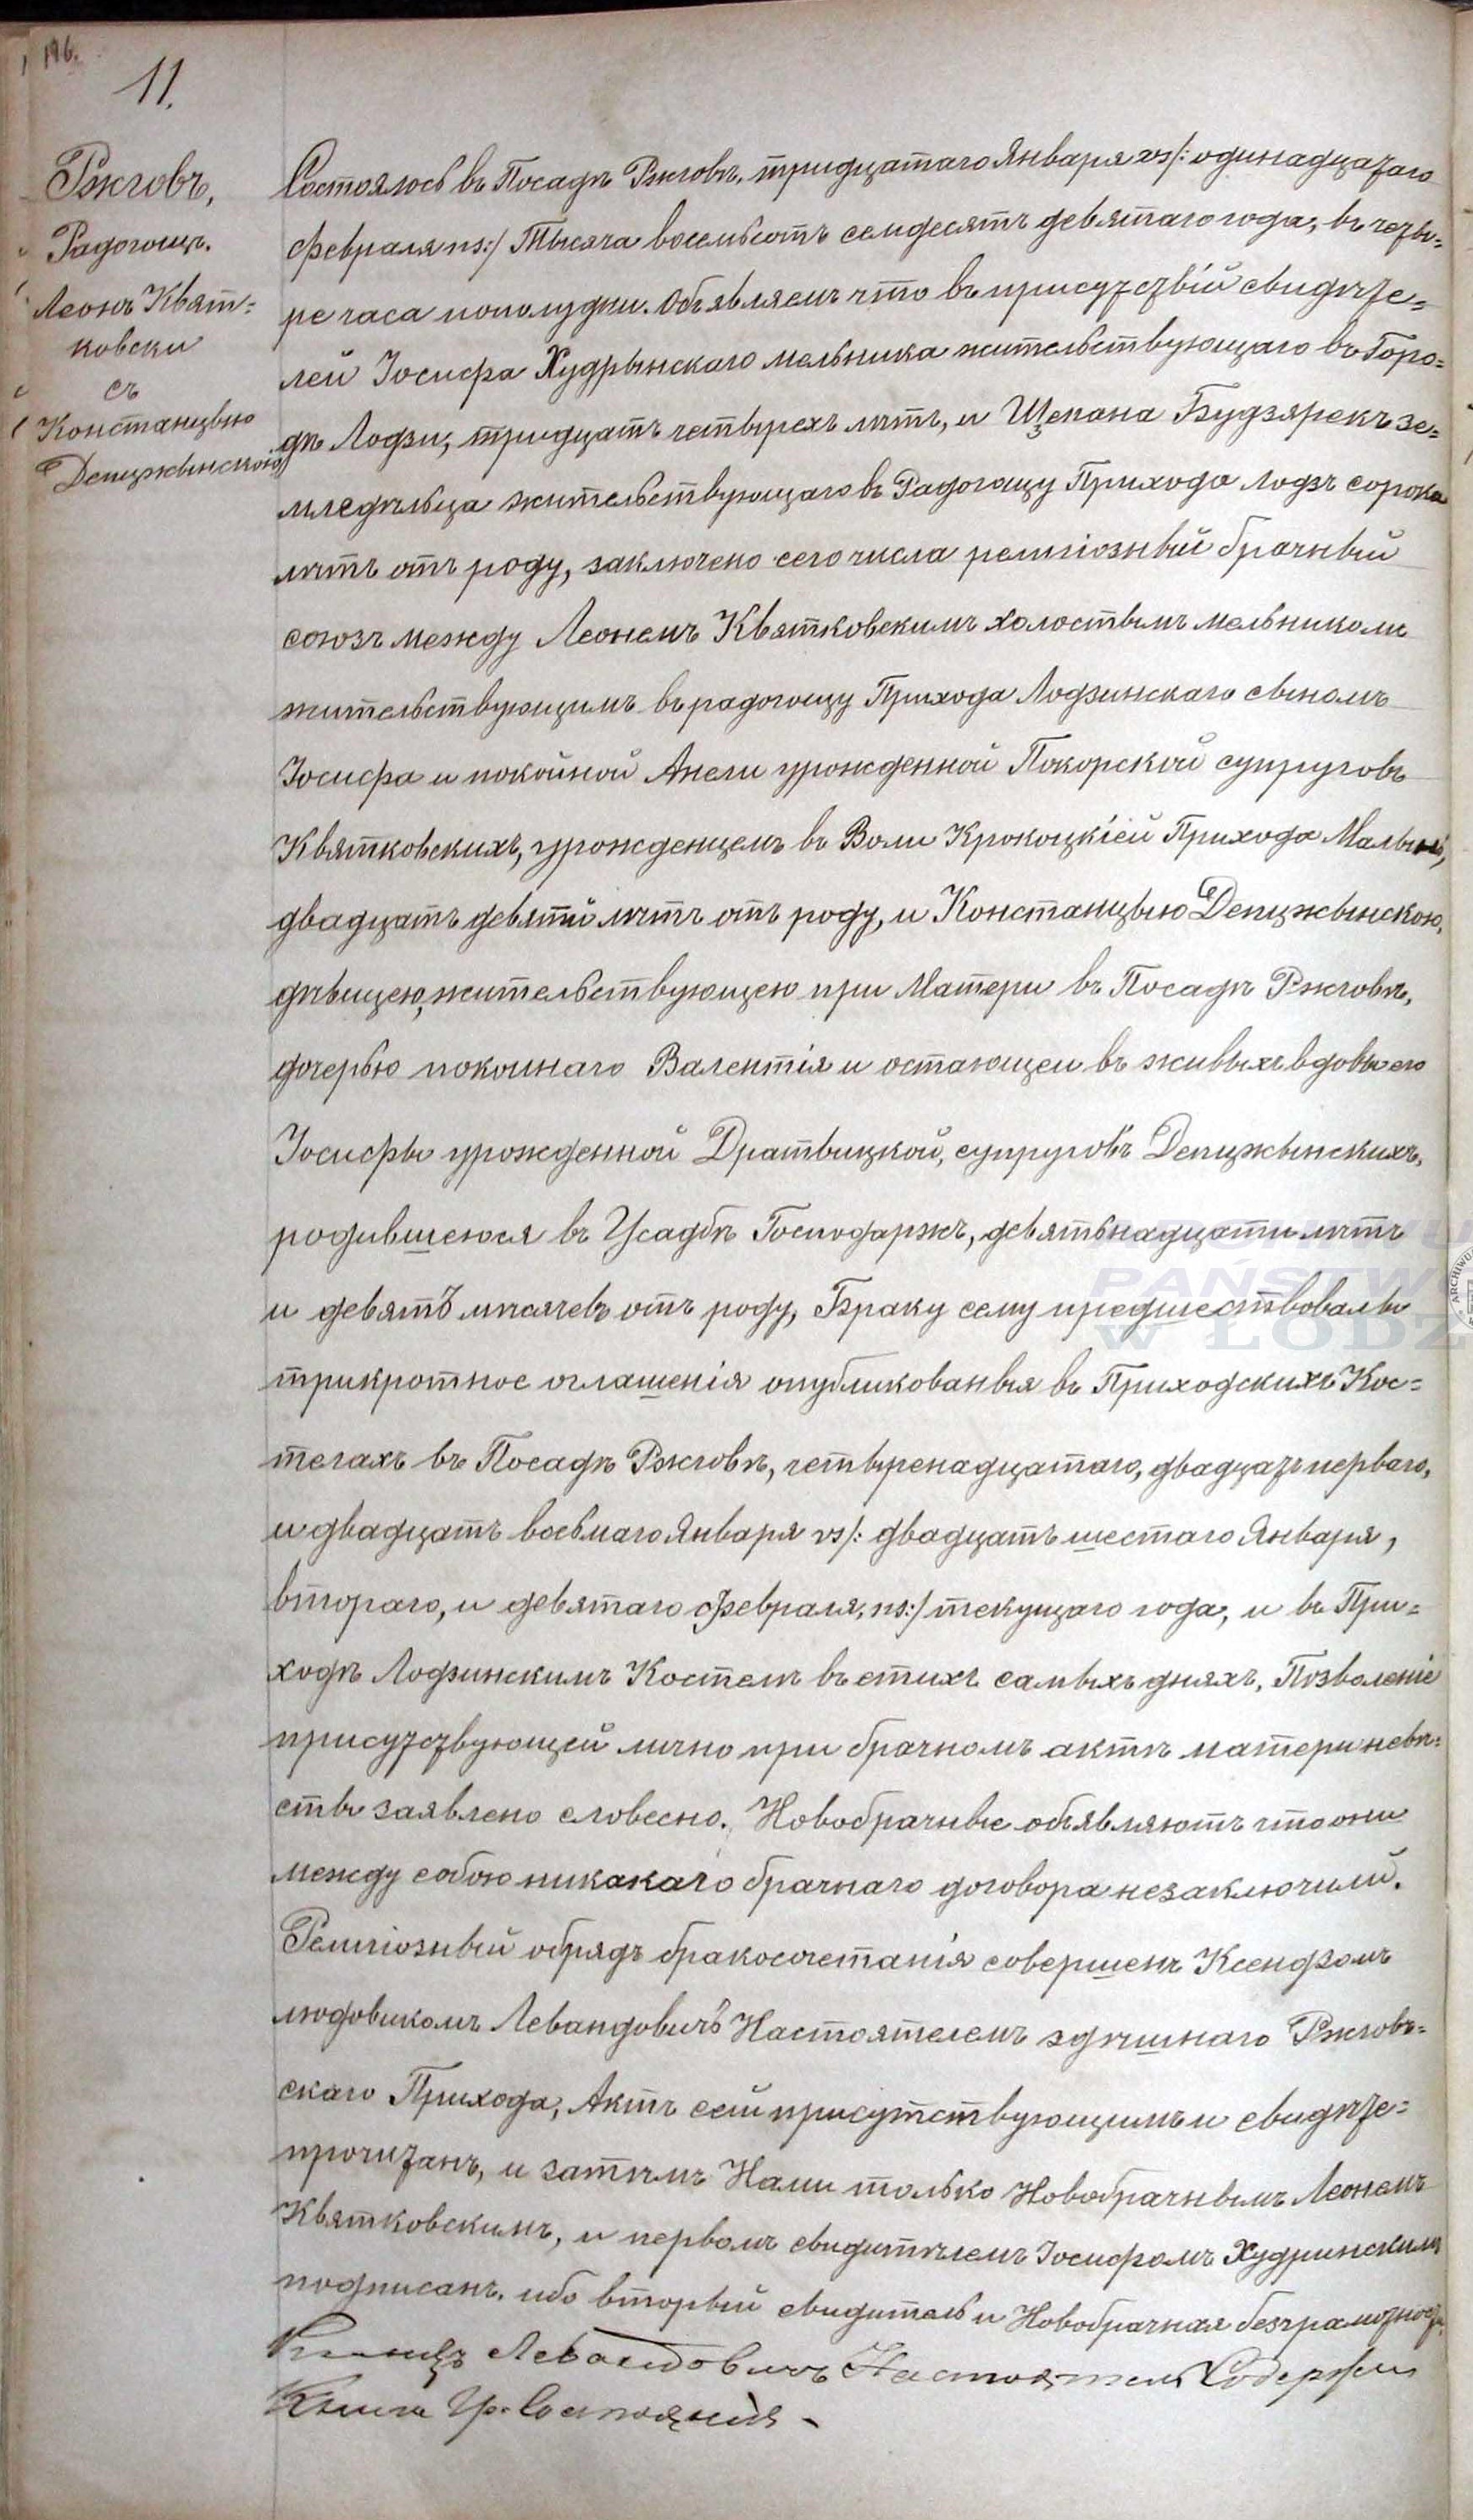 196.
11.
Ржговъ,
Радогощъ.
Леонъ Квят=
ковски
съ
Констанцыю
Депцжынскою
Состоялось въ Посадѣ Ржговѣ, тридцатаго Января vs/: одинадцатаго
февраля ns:/ Тысяча восемьсотъ семдесятъ девятаго года, въ четы=
ре часа пополудни. Объявляемъ что въ присутствій свидѣте=
лей Іосифа Худрынскаго мельника жительствующаго въ Горо=
дѣ Лодзи, тридцатъ четырехъ лѣтъ, и Щепана Будзярекъ зе=
мледѣльца жительствующаго въ Радогощу Прихода Лодзъ сорока
лѣтъ отъ роду, заключено сего числа религіозный брачный
союзъ между Леонемъ Квятковскимъ холостымъ мельникомъ
жительствующимъ въ радогощу Прихода Лодзинскаго сыномъ
Іосифа и покойной Анели урожденной Покорской супруговъ
Квятковскихъ, урожденцемъ въ Воли Крокоцкіей Прихода
двадцатъ девяти лѣтъ отъ роду, и Констанцыю Депцжынскою,
дѣвицею, жительствующею при Матери въ Посадѣ Ржговѣ,
дочерью покоинаго Валентія и остающеи въ живыхъ вдовы его
Іосифы урожденной Дратвицкой, супруговъ Депцжынскихъ,
родившеюся въ Усадбѣ Господаржъ, девятьнадцати лѣтъ
и девятъ мѣсячевъ отъ роду, Браку сему предшествовалы
трикротное оглашенія опубликованыя въ Приходскихъ Кос=
телахъ въ Посадѣ Ржговѣ, четыренадцатаго, двадцатъ перваго,
и двадцатъ восьмаго Января vs/: двадцатъ шестаго Января,
втораго, и девятаго февраля, ns:/ текущаго года, и въ При=
ходѣ Лодзинскимъ Костелѣ въ етихъ самыхъ дняхъ, Позволеніе
присутствующей лично при брачномъ актѣ матери невѣ=
сты заявлено словесно. Новобрачные объявляютъ что они
между собою никакаго брачнаго договора незаключили.
Религіозный обрядъ бракосочетанія совершенъ Ксендзомъ
людовикомъ Левандовичъ Настоятелемъ здѣшнаго Ржговъ=
скаго Прихода, Актъ сей присутствующимъ и свидѣте=
прочитанъ, и затѣмъ Нами только Новобрачнымъ Леонемъ
Квятковскимъ, и первомъ свидитѣлемъ Іосифомъ Худринскимъ
подписанъ. ибо вторый свидитель и Новобрачная безграмотносты
Ксендзъ Левандовичъ Настоятель Содержащ
Книги Гр. Состоянія -
ARCHIWUM
PAŃSTWOWE
W ŁODZI